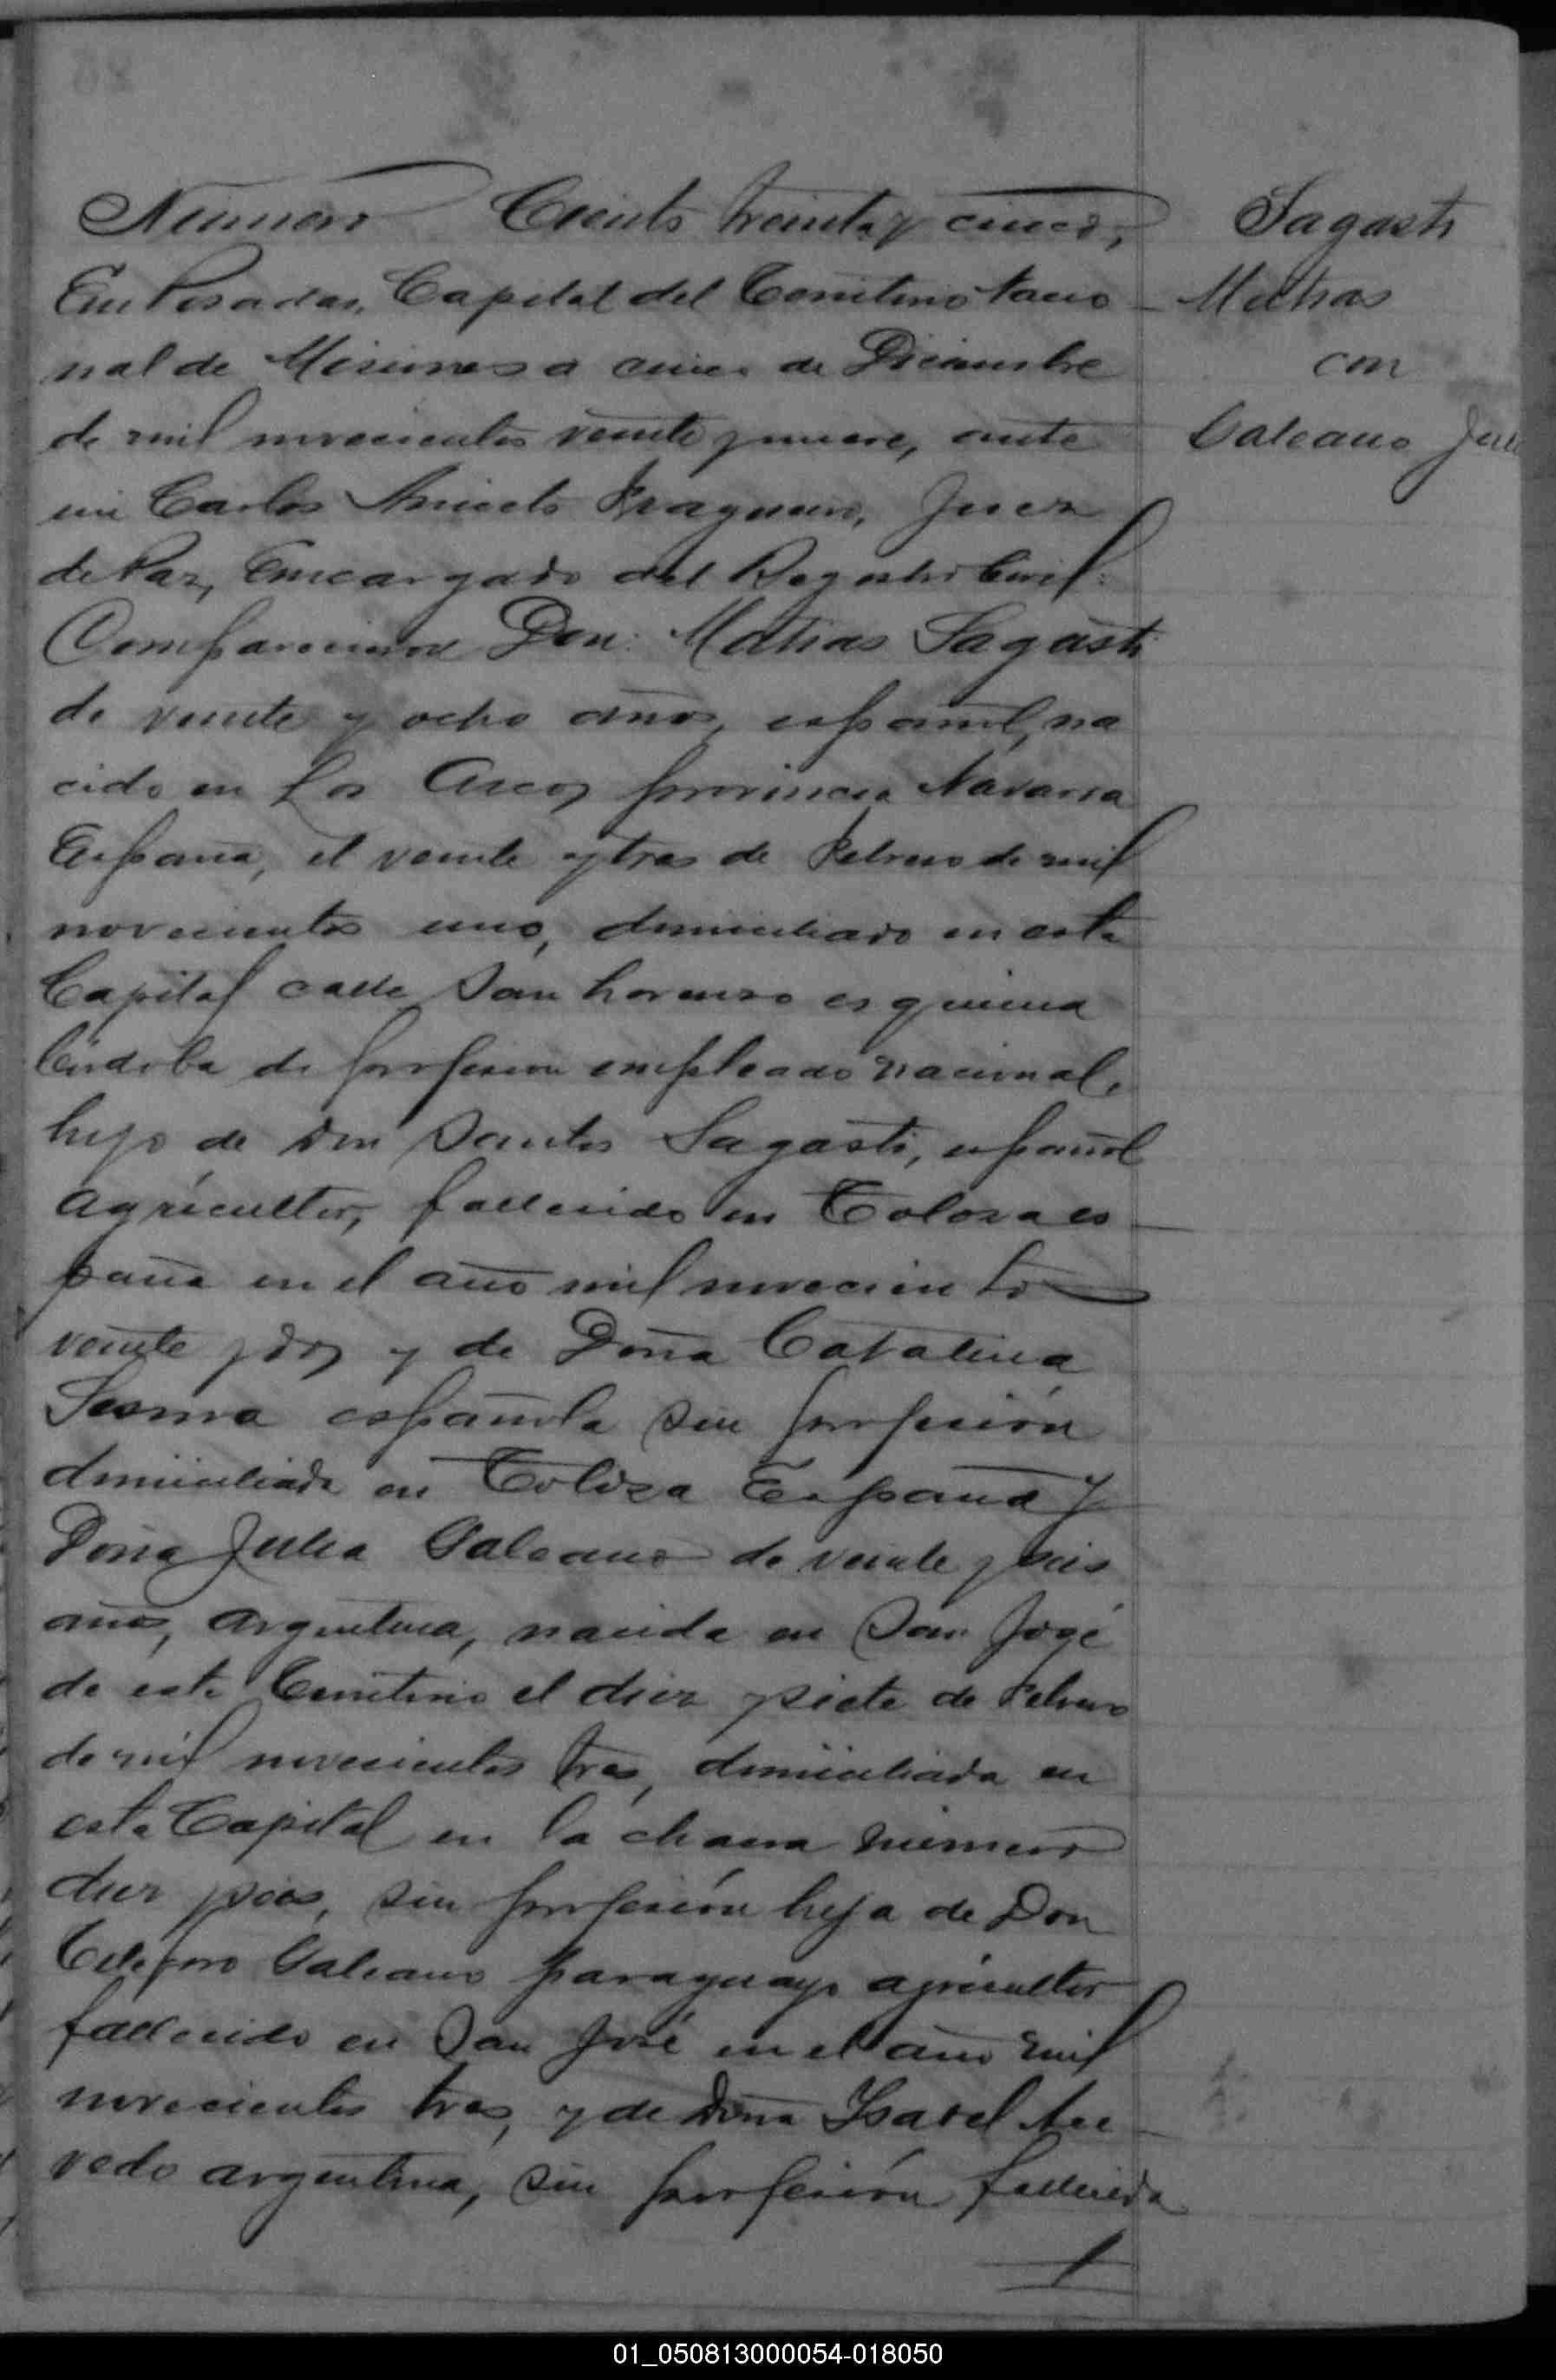 Numero Ciento treinta y cinco,
En Posadas, Capital del Territorio Nacio
nal de Misiones a cinco de Diciembre
de mil novecientos veinte y nueve, ante
mi Carlos Aniceto Juez
de Paz, Encargado del Registro Civil:
Comparecieron Don: Matias Sagasti
de veinte y ocho años, español, na
cido en Los Arcos provincia Navarra
España, el veinte y tres de Febrero de mil
novecientos uno, domiciliado en esta
Capital calle San Lorenzo esquina
Córdoba de profesion empleado nacional,
hijo de Don Santos Sagasti, español
agricultor, fallecido en Tolosa es
paña en el año mil novecientos
veinte y dos y de Doña Catalina
Sesma española sin profesión
domiciliada en Tolosa España y
Doña Julia Galeano de veinte y seis
años, argentina, nacida en San José
de este Territorio el diez y siete de Febrero
de mil novecientos tres, domiciliada en
esta Capital en la chacra número
diez y seis, sin profesión hija de Don
Telesforo Galeano paraguayo agricultor
fallecido en San José en el año mil
novecientos tres, y de Doña Isabel Ace
vedo argentina, sin profesión fallecida
Sagasti
Matias
con
Galeano Juli
01_050813000054-018050